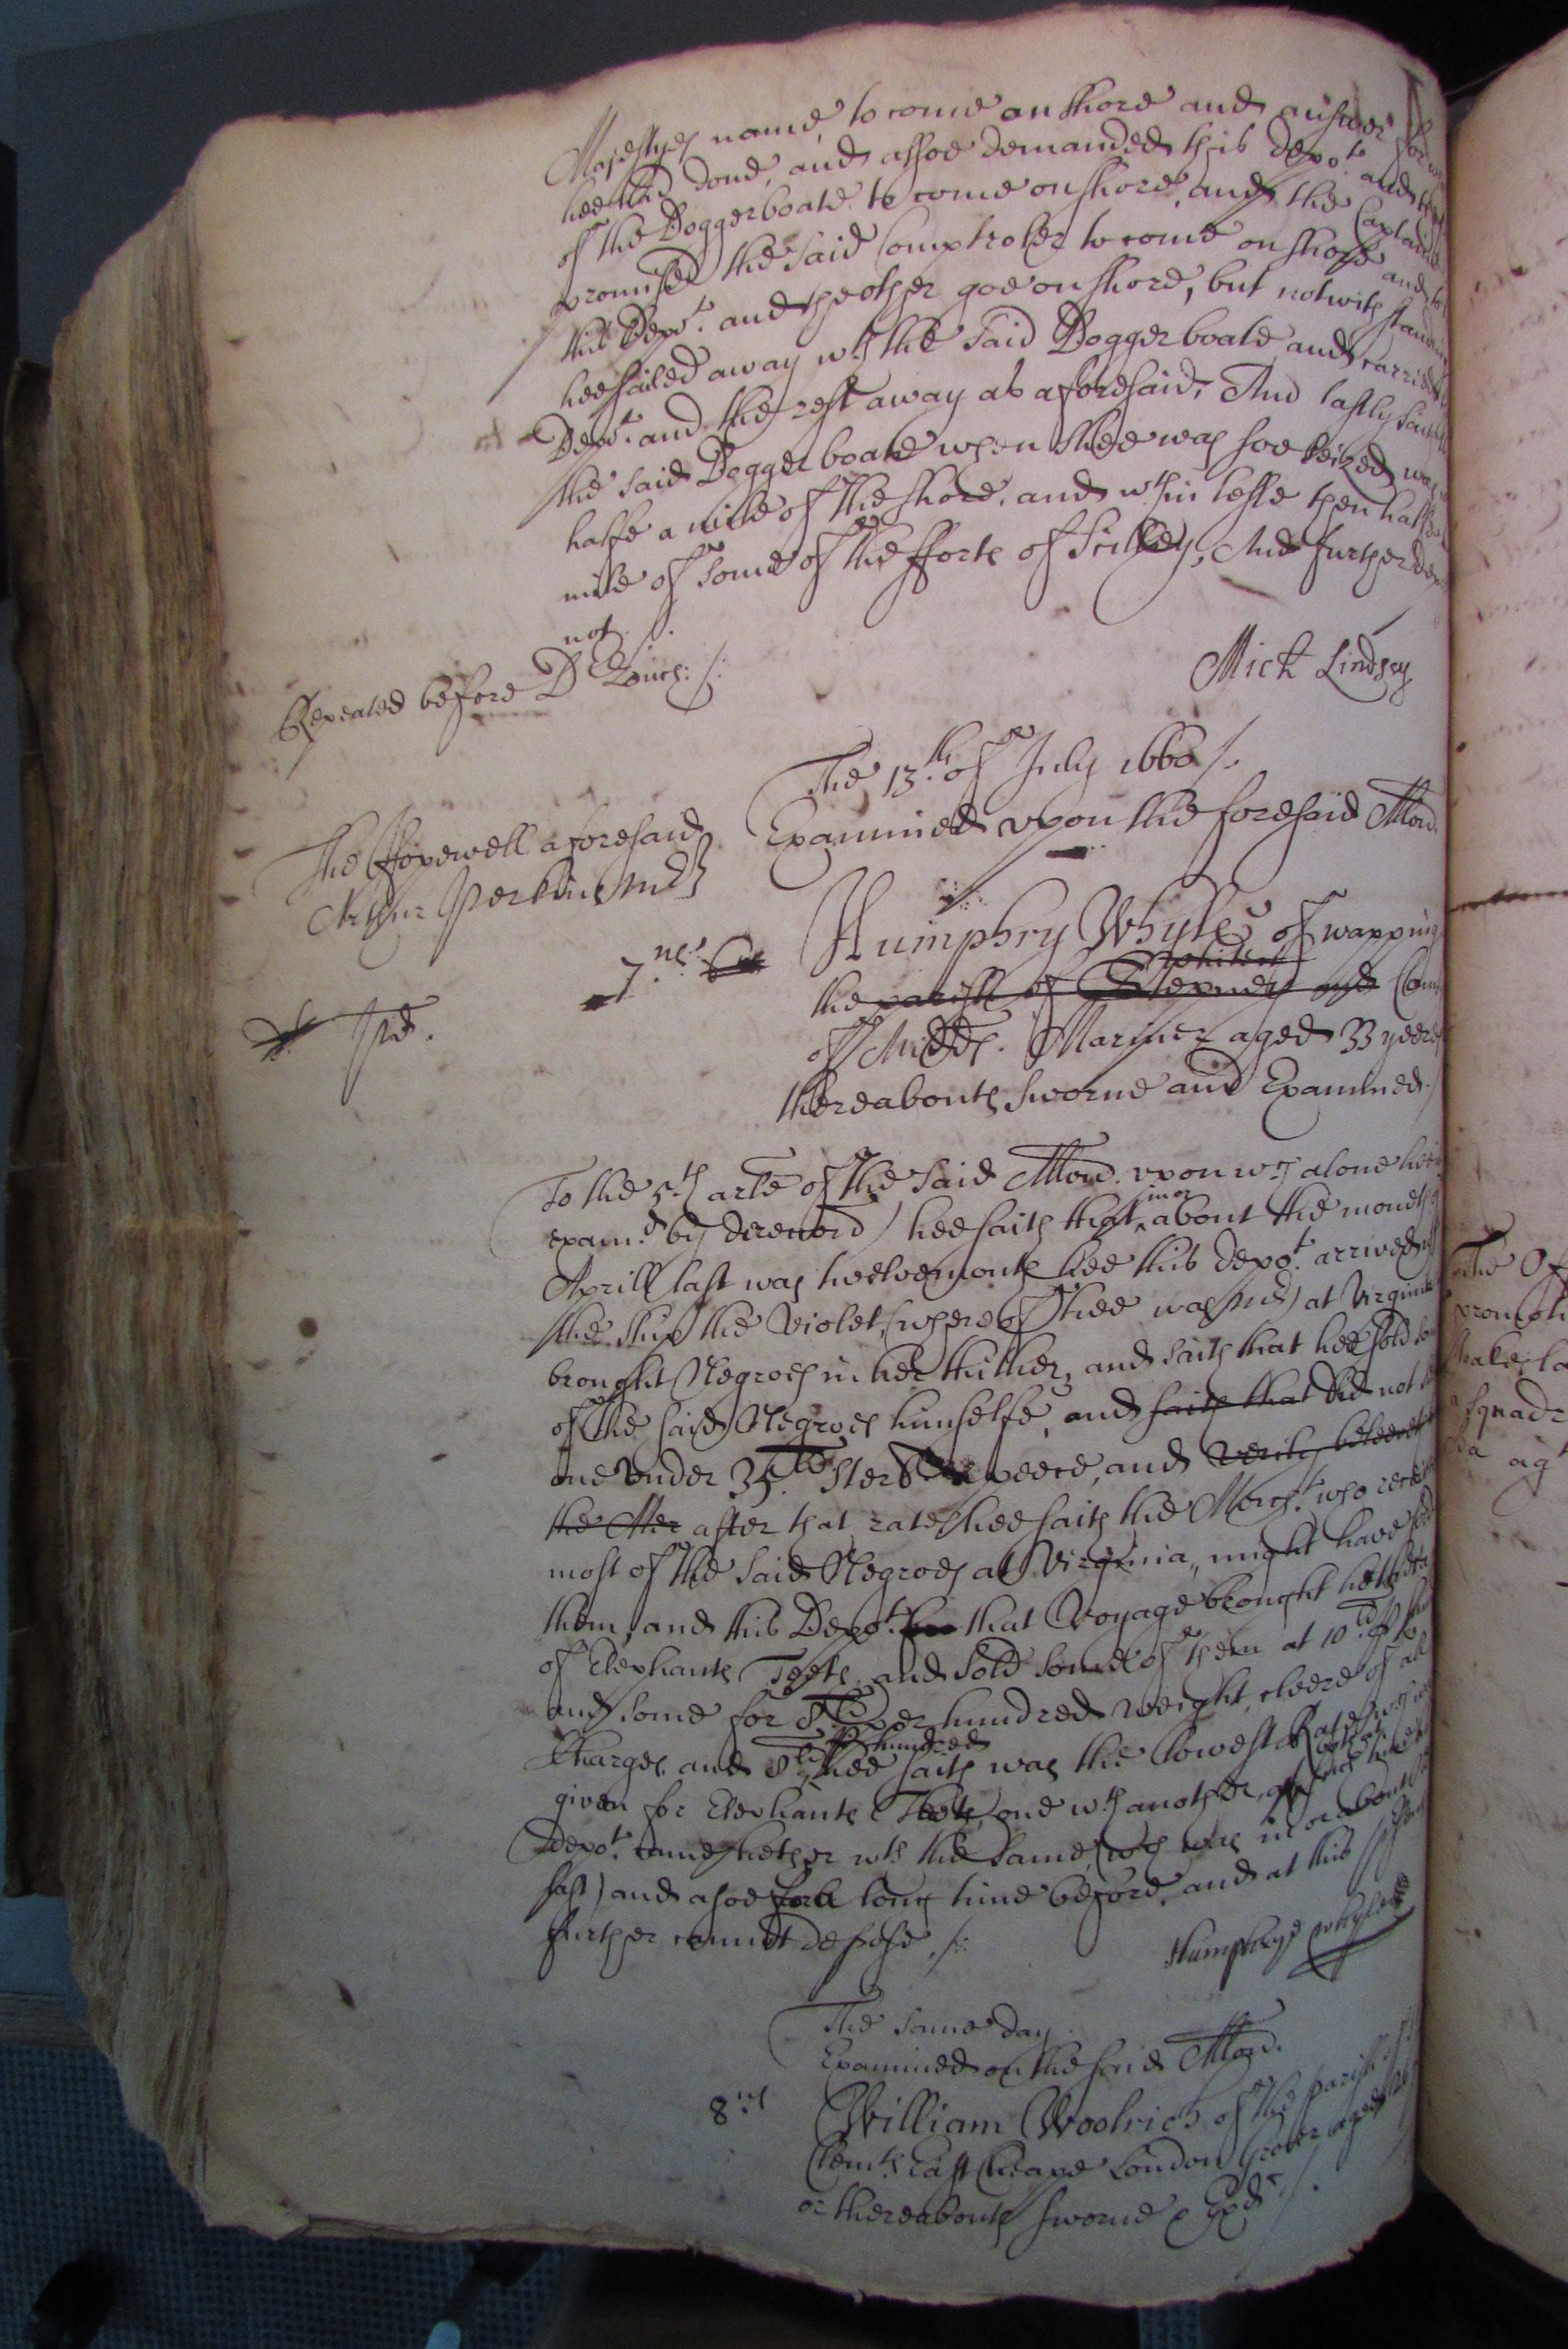 Majestyes name, to come on shore and answer for
hee had done, and alsoe demanded this depot. and
of the Doggerboate to come on shore, and the Captaine
promised the said Comptroler to come on shore and
this Depot. and the other goe on shore, but notwithstanding
hee sailed away wth the said Doggerboate and carried
Depot. and the rest away as aforesaid, And lastly saith
the said Doggerboate when shee was soe seized was
halfe a mile of the shore, and wthin lesse then halfe
mile of some of the fforts of Scilley, And further
not ./.
Mich Lindsey
Repeated before Dr Zouch: /:
The 13th of July 1660 /.
Examined upon the foresaid Allon.
The Hopewell aforesaid
Arthur Perkins Mr
7.us
Humphry Whyle of wapping
the parish of Stepney and
whitech
of Midds. Mariner aged 33 yeeres
thereabouts sworne and Examined.
Prd.
To the 5th arle of the said Allon. upon wch alone hee
exam.d by direcond) hee saith that in or about the moneth
Aprill last was twelvemonth hee this depot. arrived
the ship the Violet, (whereof hee was Mr) at Virginia
brought Negroes in her thither, and saith that hee sold
of the said Negroes himselfe, and saith that did not
one under 35.li ster a peece, and verily beleeveth
the Mer after that rate hee saith the Mercht. who
most of the said Negroes at Virginia, might have sold
them, and this Depot. that voyage brought
of Elephants Teeth and sold some of them at 10.li
and some for 8li per hundred weight cleere of all
Charges, and 8li p hundred hee saith was the lowest Rate
given for Elephants Teeth, one wth another,
Depot. came hether wth the same, (wch was in or about
last) and alsoe for a long time before, and at this
further cannot depose ./:
Humphrye whyle
The same day
Examined on the said Allon.
8.us
William Woolrich of the parish of
Clemts East Cheape London Grocer aged
or thereabouts sworne & Exd. /.
The
promoti
squadr
ag